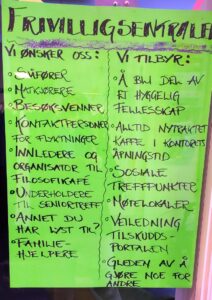 FRIVILLIGSENTRALEN
VI ØNSKER OSS:
◦ SJÅFØRER
◦ MATKJØRERE
◦ BESØKSVENNER
◦ KONTAKTPERSONER
FOR FLYKTNINGER
◦ INNLEDERE OG
ORGANISATOR TIL
FILOSOFIKAFE
◦ UNDERHOLDERE
TIL SENIORTREFF
◦ ANNET DU
HAR LYST TIL?
◦ FAMILIE-
HJELPERE
VI TILBYR:
◦ Å BLI DEL AV
ET HYGGELIG
FELLESSKAP
◦ ALLTID NYTRAKTET
KAFFE I KONTORETS
ÅPNINGSTID
◦ SOSIALE
TREFFPUNKTER
◦ MØTELOKALER
◦ VEILEDNING
TILSKUDDS-
PORTALEN
◦ GLEDEN AV Å
GJØRE NOE FOR
ANDRE